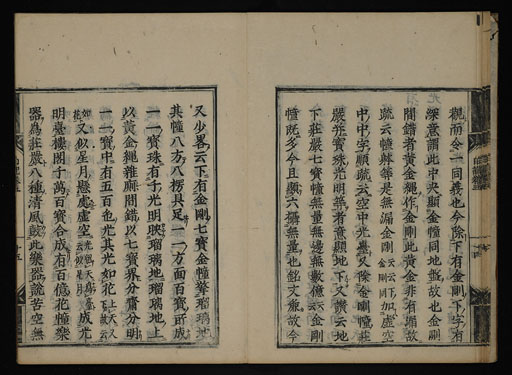 觀而令一同義也今除下有金剛下字有
深意謂此中央顯金幢同地盤故也金剛
間錯者黄金繩作金剛此黄金非有漏故
疏云幢幹等是無漏金剛
中中字順疏云空中光臺又除金剛幢莊
嚴并寶珠光明等者意顯地下又讃云地
下莊嚴七寶幢無量無邊無數億云金剛
幢既多今且顯六攝無量也銘文廉故今
又少畧云下有金剛七寶金幢擎瑠璃地
其幢八方八楞具足一一方面百寶所成
一一寶珠有千光明映瑠璃地瑠璃地上
以黄金繩雜廁間錯以七寶界分齊分明
一一寶中有五百色光其光如花
又似星月懸處虚空成光
明臺樓閣千萬百寶合成有百億花幢樂
器爲莊嚴八種清風鼓此樂器説苦空無